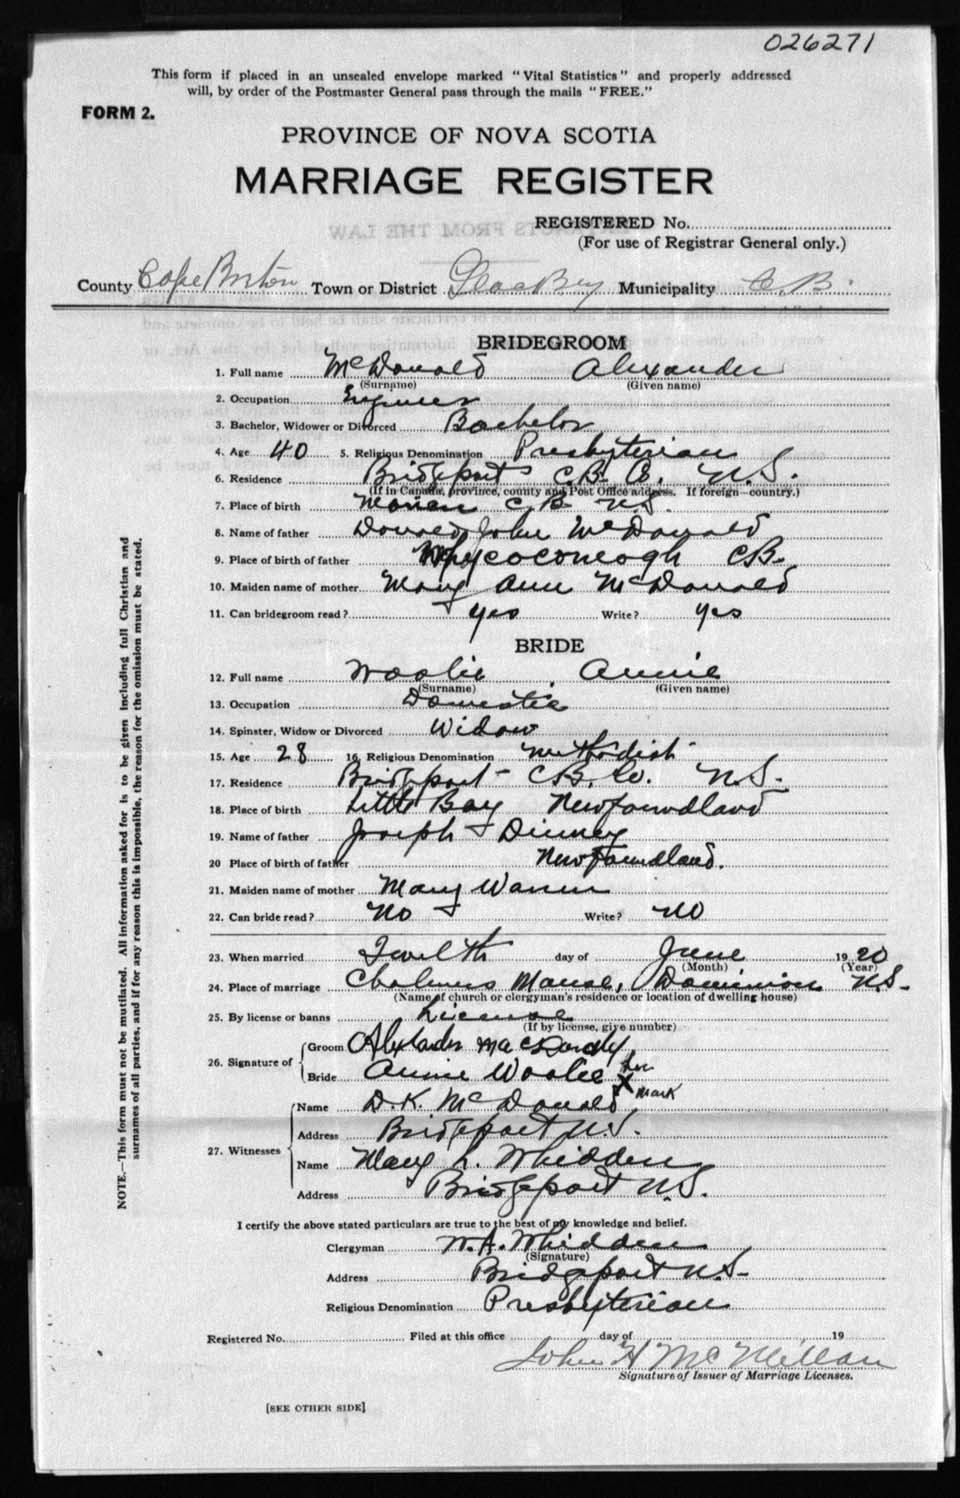 026271
This form if placed in an unsealed envelope marked "Vital Statistics" and properly addressed
will, by order of the Postmaster General pass through the mails "FREE."
FORM 2.
PROVINCE OF NOVA SCOTIA
MARRIAGE REGISTER
REGISTERED No.
(For use of Registrar General only.)
County Cape Breton Town or District Glace Bay Municipality C.B.
BRIDEGROOM
1. Full name McDonald Alexander
(Surname) (Given name)
2. Occupation Engineer
3. Bachelor, Widower or Divorced Bachelor
4. Age 40 5. Religious Denomination Presbyterian
6. Residence Bridgeport C.B. Co. N.S.
(If in Canada, province, county and Post Office address. If foreign—country.)
7. Place of birth C.B. N.S.
8. Name of father Donald John McDonald
9. Place of birth of father Whycocomagh C.B.
10. Maiden name of mother Mary Ann McDonald
11. Can bridegroom read? Yes Write? Yes
BRIDE
12. Full name Woolie Annie
(Surname) (Given name)
13. Occupation Domestic
14. Spinster, Widow or Divorced Widow
15. Age 28 16. Religious Denomination Methodist
17. Residence Bridgeport C.B. Co. N.S.
18. Place of birth Little Bay Newfoundland
19. Name of father Joseph Dinney
20 Place of birth of father Newfoundland.
21. Maiden name of mother Mary
22. Can bride read? No Write? No
23. When married Twelth day of June 1920
(Month) (Year)
24. Place of marriage Chalmers Manse, Dominion N.S.
(Name of church or clergyman's residence or location of dwelling house)
25. By license or banns License
(If by license, give number)
26. Signature of Groom Alexander
Bride Annie Woolie her X mark
27. Witnesses Name D. K. McDonald
Address Bridgeport N.S.
Name Mary L. Whidden
Address Bridgeport N.S.
I certify the above stated particulars are true to the best of my knowledge and belief.
Clergyman W. A. Whidden
(Signature)
Address Bridgeport N.S.
Religious Denomination Presbyterian
Registered No. Filed at this office day of 19
John H McMillan
Signature of Issuer of Marriage Licenses.
[SEE OTHER SIDE]
NOTE.—This form must not be mutilated. All information asked for is to be given including full Christian and
surnames of all parties, and if for any reason this is impossible, the reason for the omission must be stated.